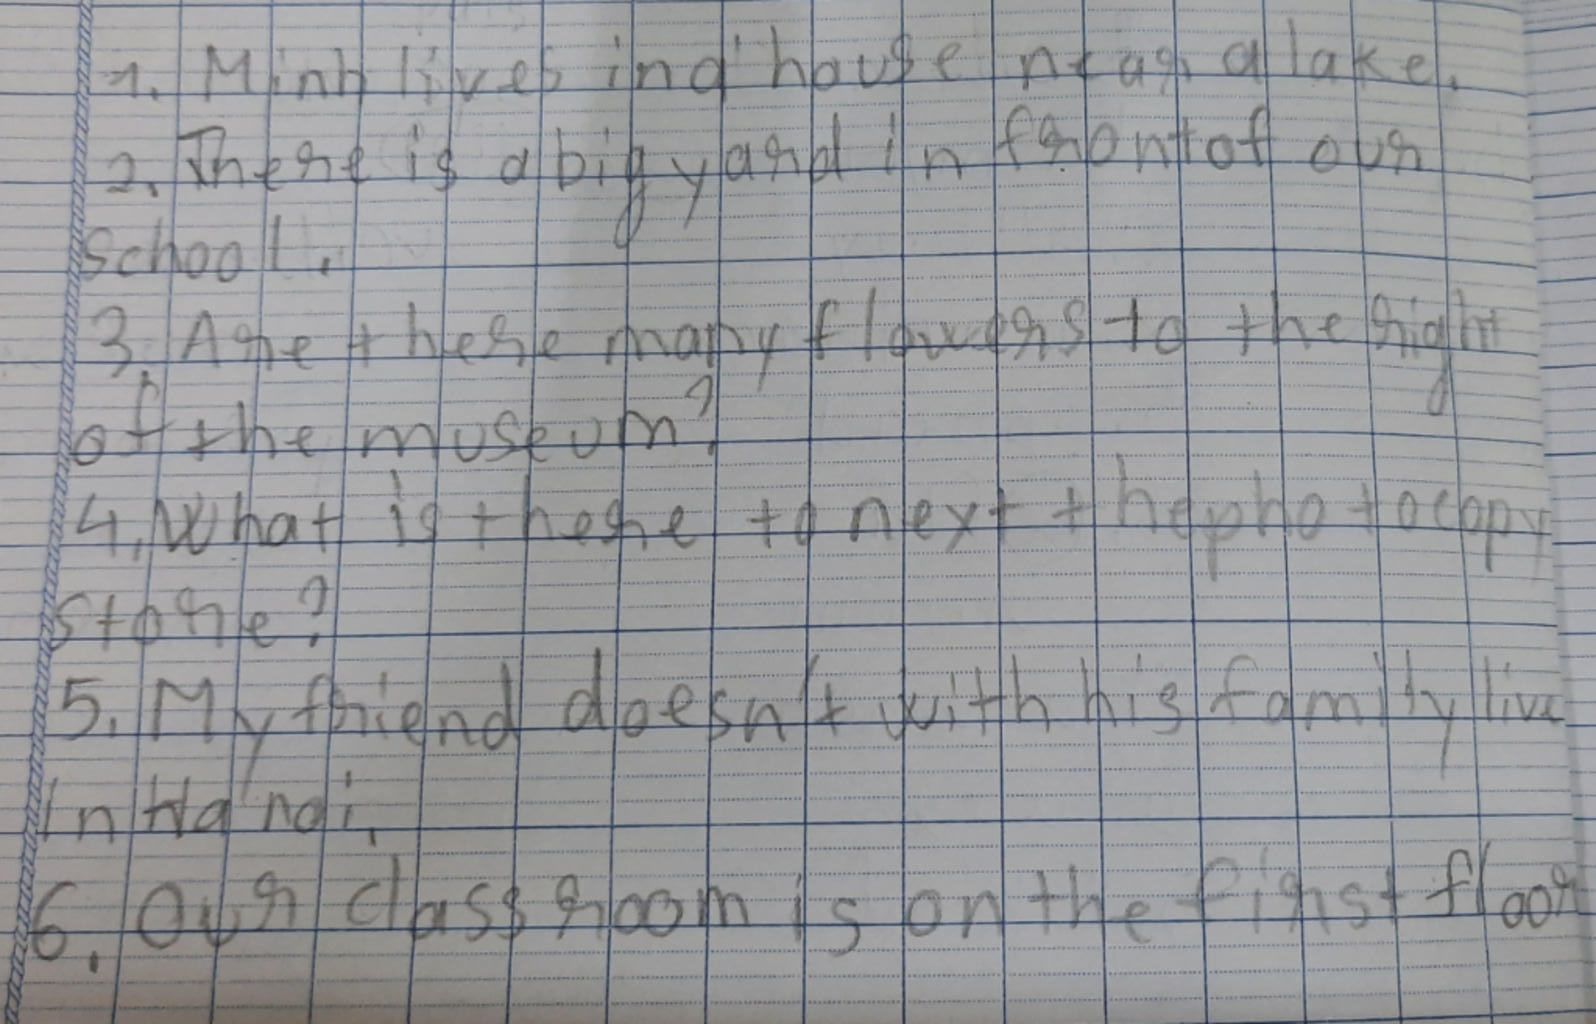 1. Minh lives in a house near a lake.
2. There is a big yard in front of our
school.
3. Are there many flowers to the right
of the museum?
4. What is there to next the photocopy
store?
5. My friend doesn't with his family live
in Ha noi.
6. Our classroom is on the first floor